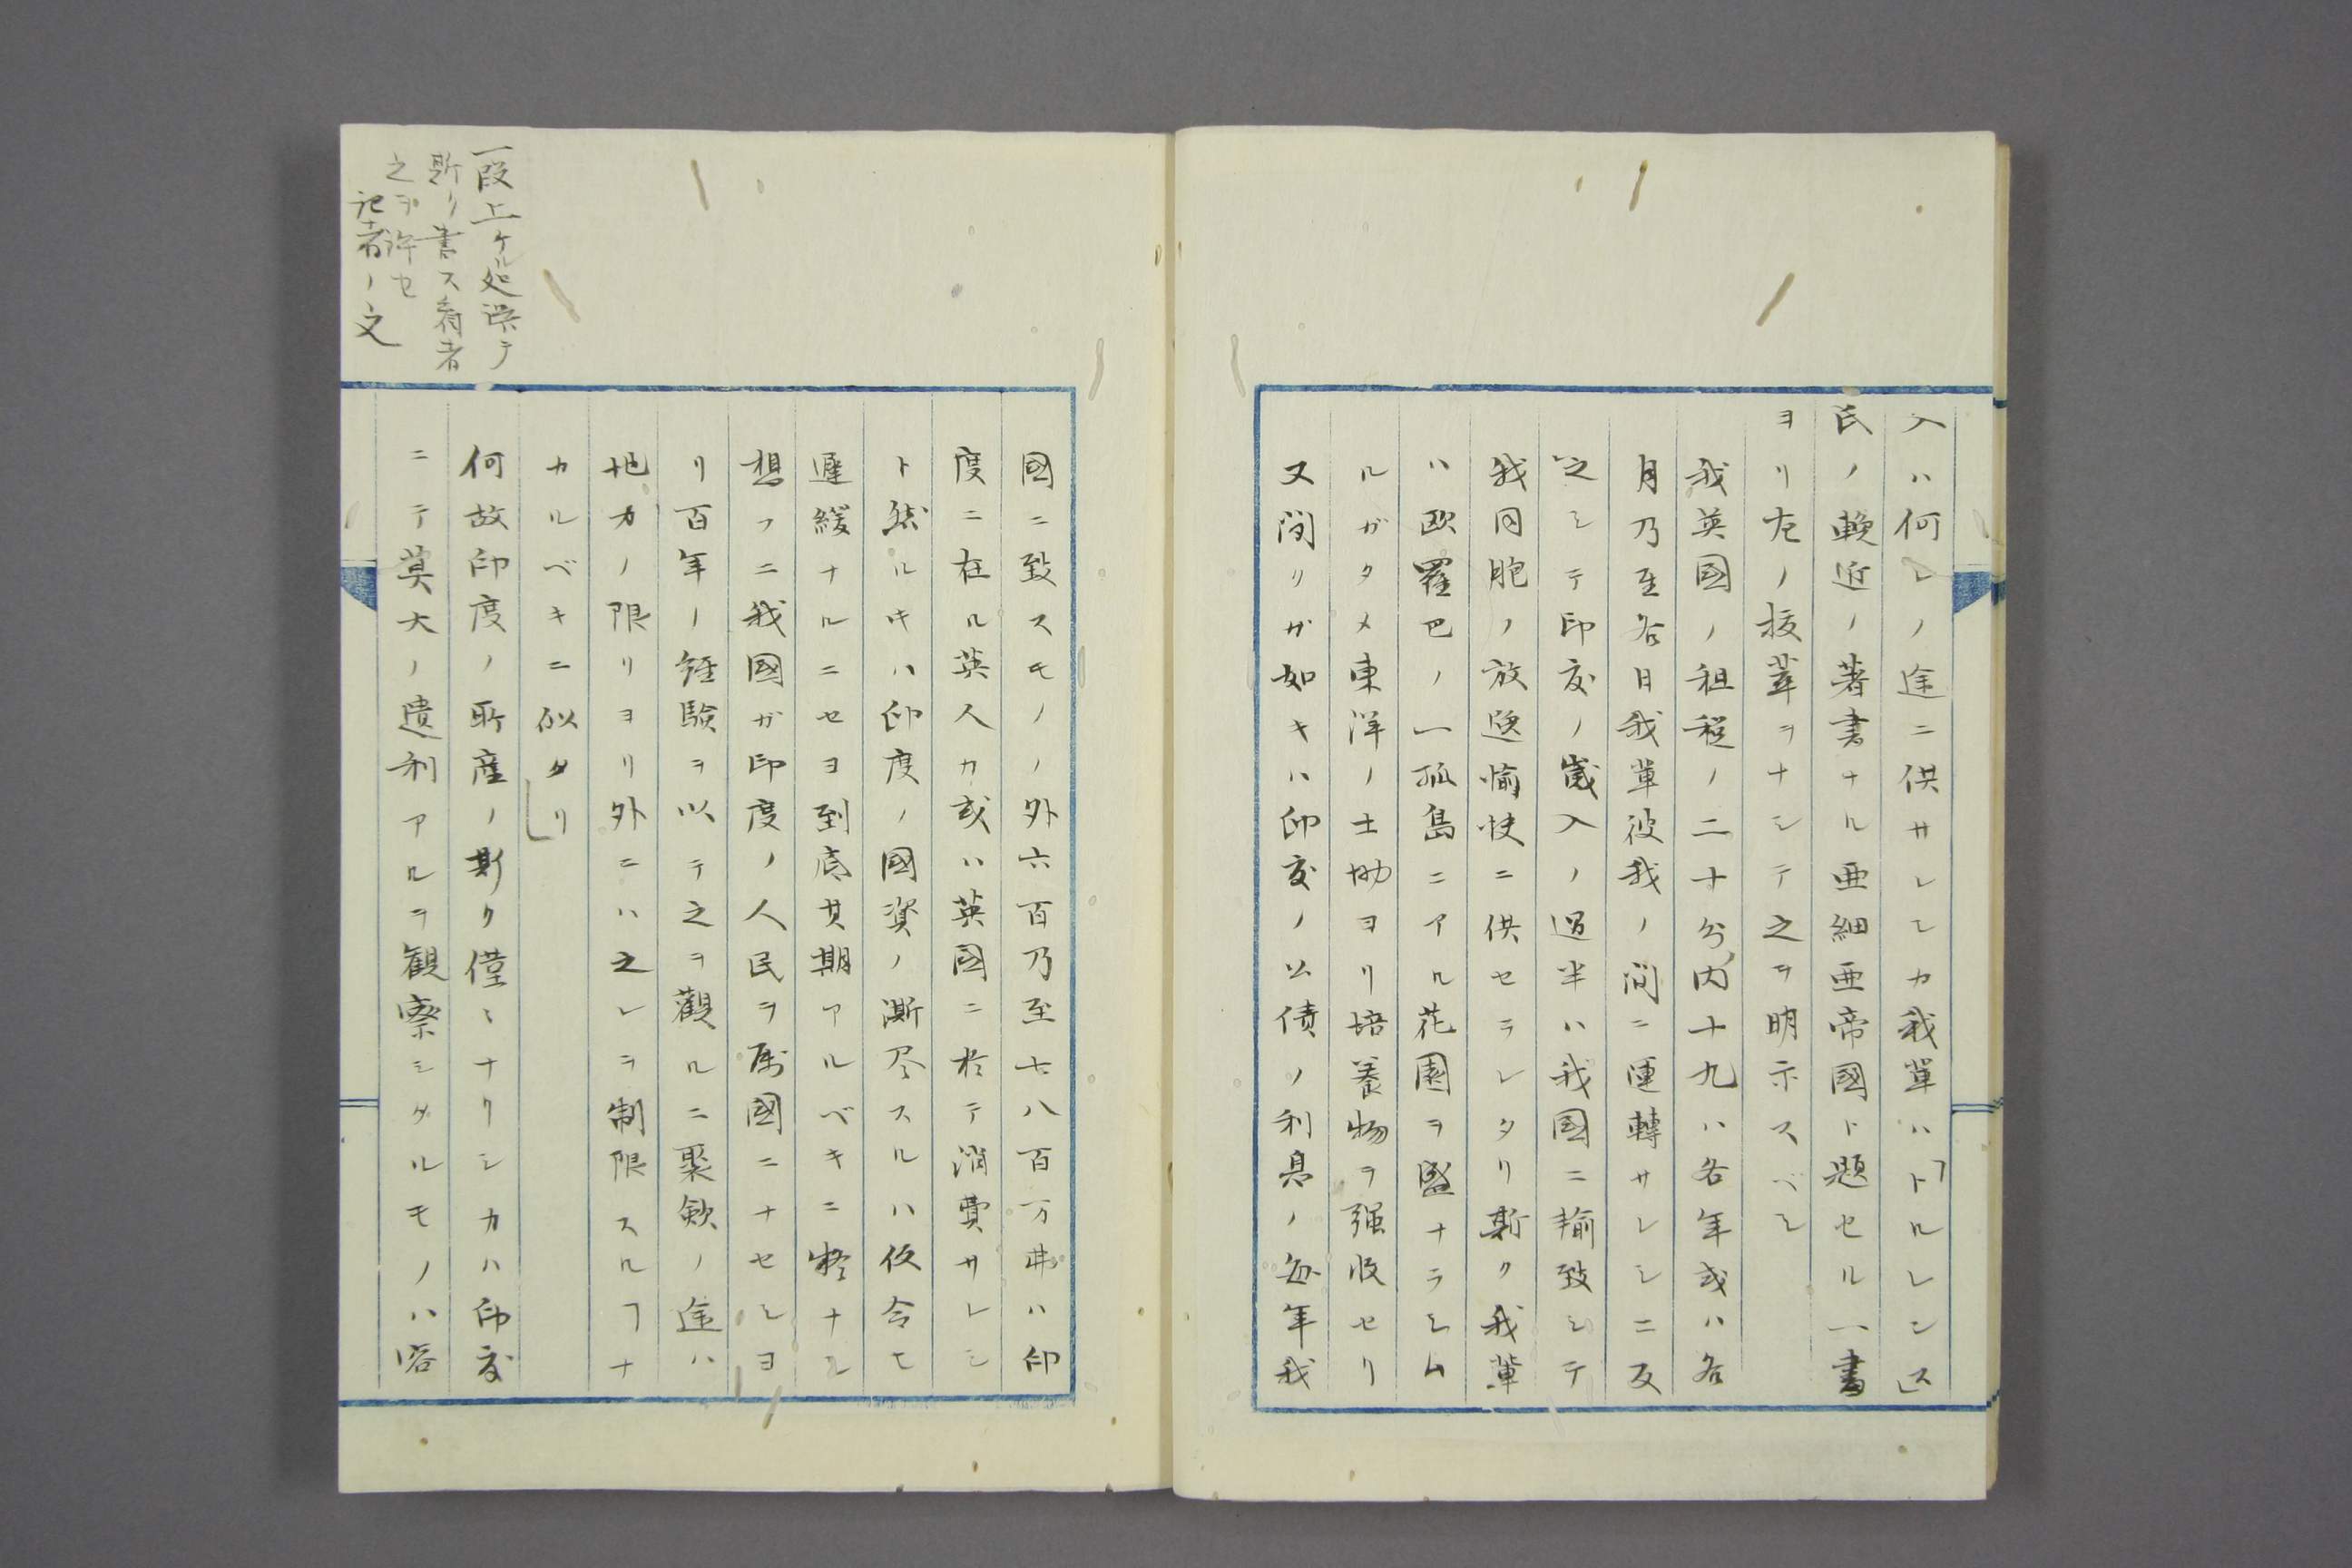 入ハ何レノ途ニ供サレシカ我輩ハ「トルレンス」
氏ノ輓近ノ著書ナル亜細亜帝國ト題セル一書
ヨリ左ノ抜萃ヲナシテ之ヲ明示スベシ
我英國ノ租税ノ二十分ノ内十九ハ各年或ハ各
月乃至各日我輩彼我ノ間ニ運轉サレシニ反
之シテ印度ノ歳入ノ過半ハ我国ニ輸致シテ
我同胞ノ放逸愉快ニ供セラレタリ斯ク我輩
ハ欧羅巴ノ一孤島ニアル花園ヲ盛ナラシム
ルガタメ東洋ノ土地ヨリ培養物ヲ强收セリ
又聞リガ如キハ印度ノ公債ノ利息ノ毎年我
國ニ致スモノノ外六百乃至七八百万弗ハ印
度ニ在ル英人カ或ハ英國ニ於テ消費サレシ
ト然ルキハ印度ノ國資ノ漸尽スルハ仮令モ
遅緩ナルニセヨ到底其期アルベキニ疑ナシ
想フニ我國ガ印度ノ人民ヲ属國ニナセシヨ
リ百年ノ經験ヲ以テ之ヲ觀ルニ聚歛ノ途ハ
地力ノ限リヨリ外ニハ之レヲ制限スルヿナ
カルベキニ似タリ」
何故印度ノ所産ノ斯ク僅々ナリシカハ印度
ニテ莫大ノ遺利アルヲ観察シタルモノハ容
一段上ケル処誤テ
斯ク書ス看者
之ヲ許セ
記者ノ文